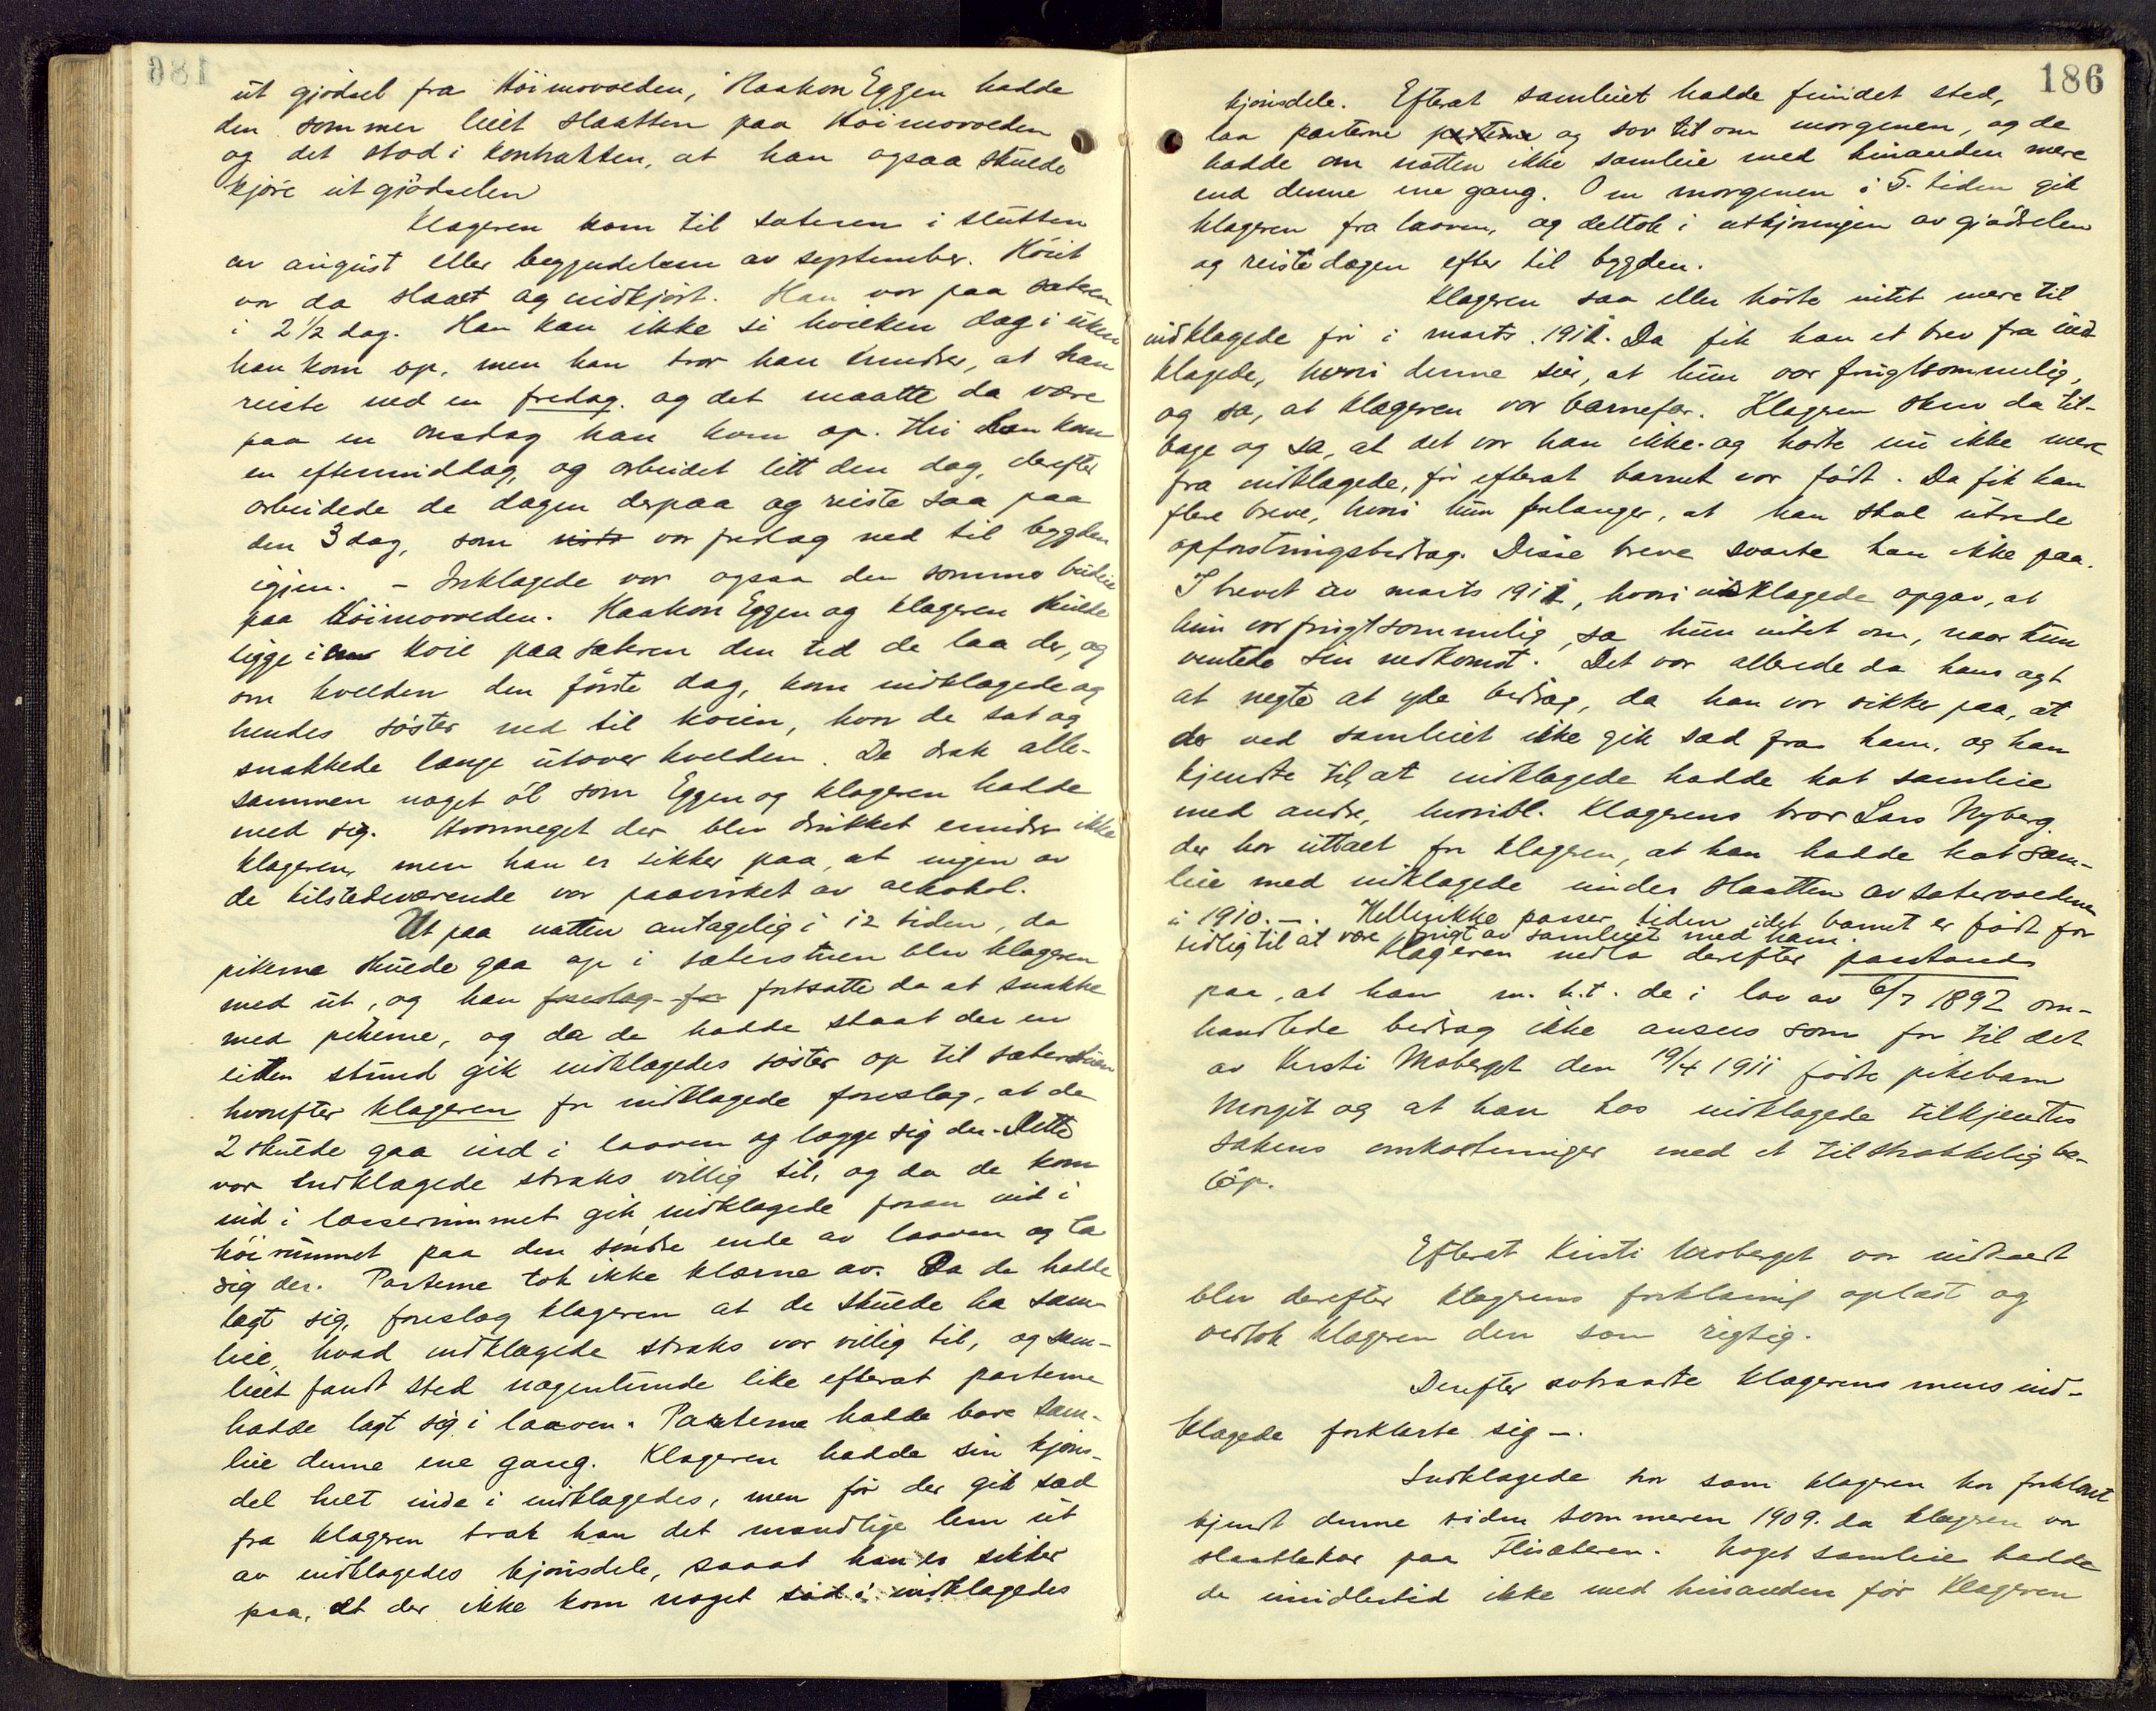 ut gjødsel fra Höimovolden, Haakon Eggen hadde
den sommer leiet slaatten paa Höimovolden
og det stod i kontrakten, at han ogsaa skulde
kjöre ut gjödselen
Klageren kom til sæteren i slutten
av august eller begyndelsen av september. Höiet
var da slaaet og indkjört. Han var paa sæteren
i 2 1/2 dag. Han kan ikke si hvilken dag i uken
han kom op, men han tror han erindrer, at han
reiste ned en fredag. og det maatte da være
paa en onsdag han kom op. Han kom
en eftermiddag, og arbeidet litt den dag, derefter
arbeidede de dagen derpaa og reiste saa paa
den 3 dag, som var fredag ned til bygden
igjen. - Indklagede var ogsaa den sommer budeie
paa Höimovolden. Haakon Eggen og klageren skulde
ligge i en koie paa sæteren den tid de laa der, og
om kvelden den förste dag, kom indklagede og
hendes söster ned til koien, hvor de sat og
snakkede længe utover kvelden. De drak alle-
sammen noget öl som Eggen og klageren hadde
med sig. Hvormeget der blev drukket erindrer ikke
klageren, men han er sikker paa, at ingen av
de tilstedeværende var paavirket av alkohol.
Ut paa natten antagelig i 12 tiden, da
pikerne skulde gaa op i sæterstuen blev klageren
med ut, og han foreslog for fortsatte da at snakke
med pikerne, og da de hadde staat der en
liten stund gik indklagedes söster op til sæterstuen
hvorefter klageren for indklagede foreslog, at de
2 skulde gaa ind i laaven og lægge sig der. Dette
var indklagede straks villig til, og da de kom
ind i læsserummet gik indklagede foran ind i
höirummet paa den söndre ende av laaven og la
sig der. Parterne tok ikke klærne av. Da de hadde
lagt sig, foreslog klageren at de skulde ha sam-
leie, hvad indklagede straks var villig til, og sam-
leiet fandt sted nogenlunde like efterat parterne
hadde lagt sig i laaven. Parterne hadde bare sam-
leie denne ene gang. Klageren hadde sin kjöns-
del helt inde i indklagedes, men för der gik sæd
fra klageren trak han det mandlige lem ut
av indklagedes kjönsdele, saaat han er sikker
paa, at der ikke kom noget sæd i indklagedes
186
kjönsdele. Efterat samleiet hadde fundet sted,
laa parterne parterne og sov til om morgenen, og de
hadde om natten ikke samleie med hinanden mere
end denne ene gang. Om morgenen i 5. tiden gik
klageren fra laaven, og deltok i utkjöringen av gjödselen
og reiste dagen efter til bygden.
Klageren saa eller hörte intet mere til
indklagede för i marts 1911. Da fik han et brev fra ind-
klagede, hvori denne sier, at hun var frugtsommelig,
og sa, at klageren var barnefar. Klageren skrev da til-
bage og sa, at det var han ikke. og hörte nu ikke mere
fra indklagede, för efterat barnet var födt. Da fik han
flere breve, hvori hun forlanger, at han skal utrede
opfostringsbidrag. Disse breve svarte han ikke paa.
I brevet av marts 1911, hvori indklagede opgav, at
hun var frugtsommelig, sa hun intet om, naar hun
ventede sin nedkomst. Det var allerede da hans agt
at negte at yde bidrag, da han var sikker paa, at
der ved samleiet ikke gik sæd fra ham, og han
kjendte til at indklagede hadde hat samleie
med andre, hvoribl. klagerens bror Lars Nyberg
der har uttalt for klageren, at han hadde hat sam-
leie med indklagede under slaatten av sætervoldene
i 1910. -. Heller ikke passer tiden idet barnet er födt for
tidlig til at være frugt av samleiet med ham.
Klageren nedla derefter paastand
paa, at han m. h. t. de i lov av 6/7 1892 om-
handlede bidrag ikke ansees som far til det
av Kirsti Moberget den 19/4 1911 födte pikebarn
Margit og at han hos indklagede tilkjendtes
sakens omkostninger med et tilstrækkelig be-
löp.
Efterat Kirsti Moberget var indkaldt
blev derefter klagerens forklaring oplæst og
vedtok klageren den som rigtig.
Derefter avtraadte klageren mens ind-
klagede forklarte sig -.
Indklagede har som klageren har forklart
kjendt denne siden sommeren 1909. da klageren var
slaattekar paa Flisæteren. Noget samleie hadde
de imidlertid ikke med hinanden för klageren